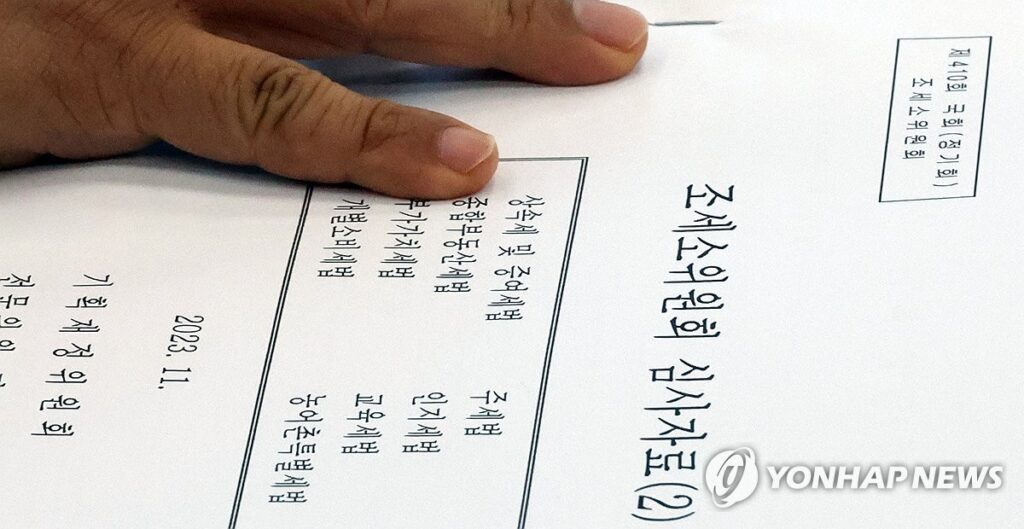 제410회 국회(정기회)
조세소위원회
조세소위원회 심사자료(2)
상속세 및 증여세법
종합부동산세법
부가가치세법
개별소비세법
주세법
인지세법
교육세법
농어촌특별세법
2023. 11.
기획재정위원회
YONHAP NEWS